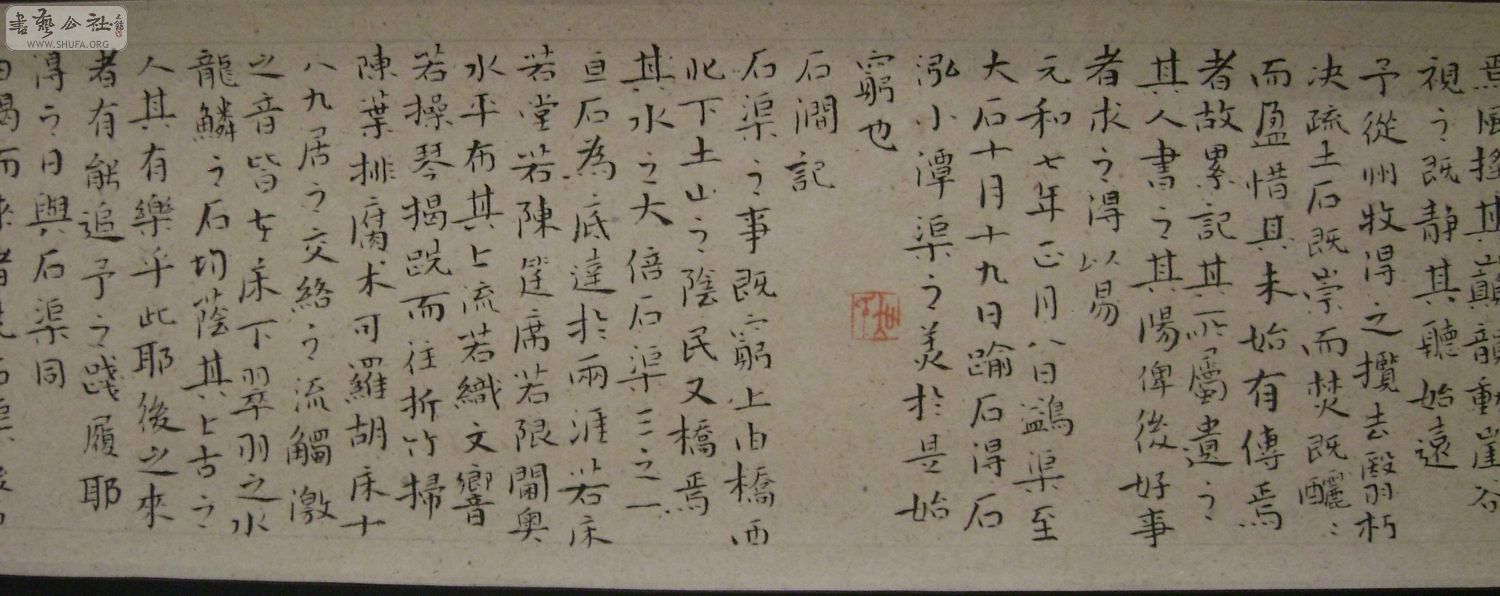 焉風搖其巔韻動崖谷
視之既靜其聽始遠
予從州牧得之攬去翳朽
決疏土石既崇而焚既釃〻
而盈惜其未始有傳焉
者故累記其所屬遺之
其人書之其陽俾後好事
者求之得以易
元和七年正月八日蠲渠至
大石十月十九日踰石得石
泓小潭渠之美於是始
窮也
石澗記
石渠之事既窮上由橋西
北下土山之陰民又橋焉
其水之大倍石渠三之一
亘石為底達於兩涯若床
若堂若陳筵席若限閫奧
水平布其上流若織文響
若操琴揭跣而往折竹掃
陳葉排腐木可羅胡床十
八九居之交絡之流觸激
之音皆在床下翠羽之水
龍鱗之石均蔭其上古之
人其有樂乎此耶後之來
者有能追予之踐履耶
得之日與石渠同
由渴而來者先石渠後石
書藝公社
WWW.SHUFA.ORG